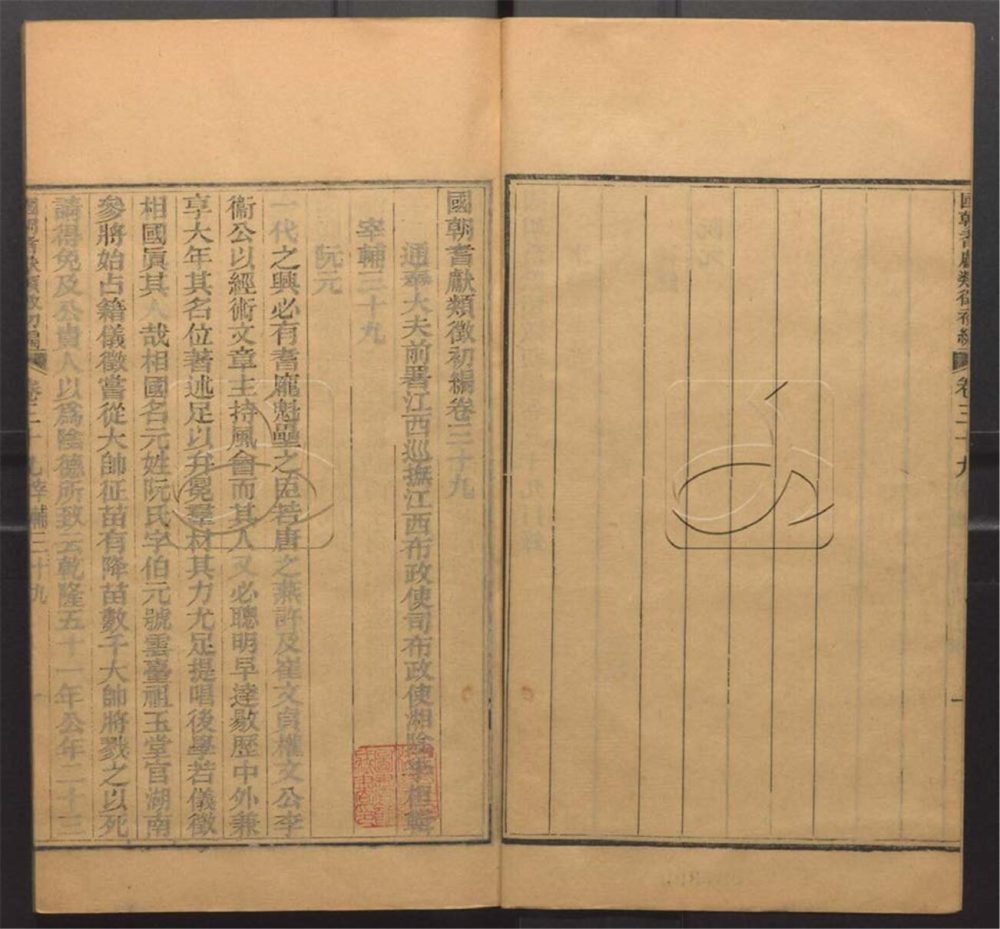 國朝耆獻類徵初編 卷三十九 一
國朝耆獻類徵初編卷三十九
通奉大夫前署江西巡撫江西布政使司布政使湖陰李桓輯
宰輔三十九
阮元
一代之興必有耆龐魁壘之臣若唐之燕許及崔文貞權文公李
衞公以經術文章主持風會而其人又必聰明早達敭歷中外兼
享大年其名位著述足以弁冕羣材其力尤足提唱後學若儀徵
相國眞其人哉相國名元姓阮氏字伯元號雲臺祖玉堂官湖南
參將始占籍儀徵嘗從大帥征苗有降苗數千大帥將戮之以死
請得免及公貴人以爲陰德所致云乾隆五十一年公年二十三
國朝耆獻類徵初編 卷三十九 宰輔三十九 一